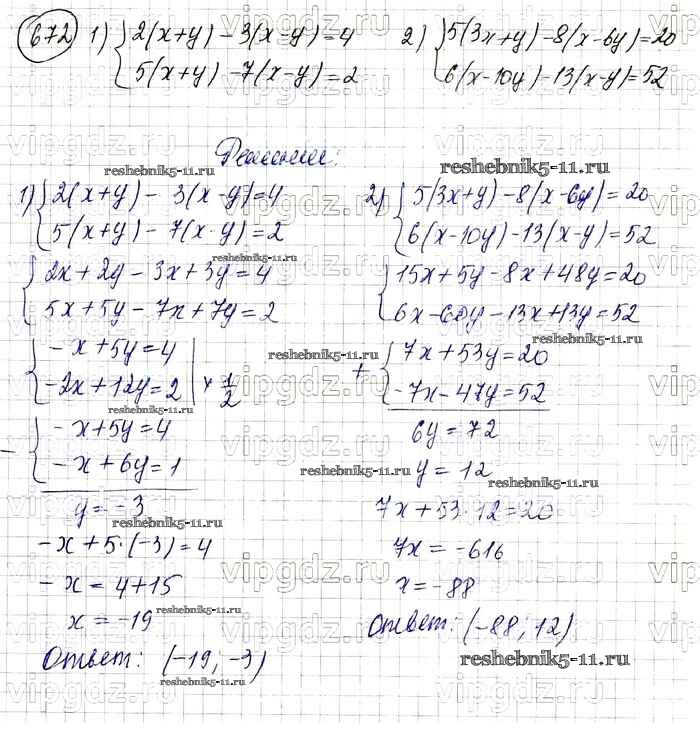 672 1) { 2(x+y) - 3(x-y) = 4
5(x+y) - 7(x-y) = 2
2) { 5(3x+y) - 8(x-6y) = 20
6(x-10y) - 13(x-y) = 52
Решение:
1) { 2(x+y) - 3(x-y) = 4
5(x+y) - 7(x-y) = 2
{ 2x + 2y - 3x + 3y = 4
5x + 5y - 7x + 7y = 2
{ -x + 5y = 4
-2x + 12y = 2 | × 1/2
- { -x + 5y = 4
-x + 6y = 1
y = -3
-x + 5·(-3) = 4
-x = 4 + 15
x = -19
Ответ: (-19; -3)
2) { 5(3x+y) - 8(x-6y) = 20
6(x-10y) - 13(x-y) = 52
{ 15x + 5y - 8x + 48y = 20
6x - 60y - 13x + 13y = 52
+ { 7x + 53y = 20
-7x - 47y = 52
6y = 72
y = 12
7x + 53·12 = 20
7x = -616
x = -88
Ответ: (-88; 12)
vipgdz.ru
reshebnik5-11.ru